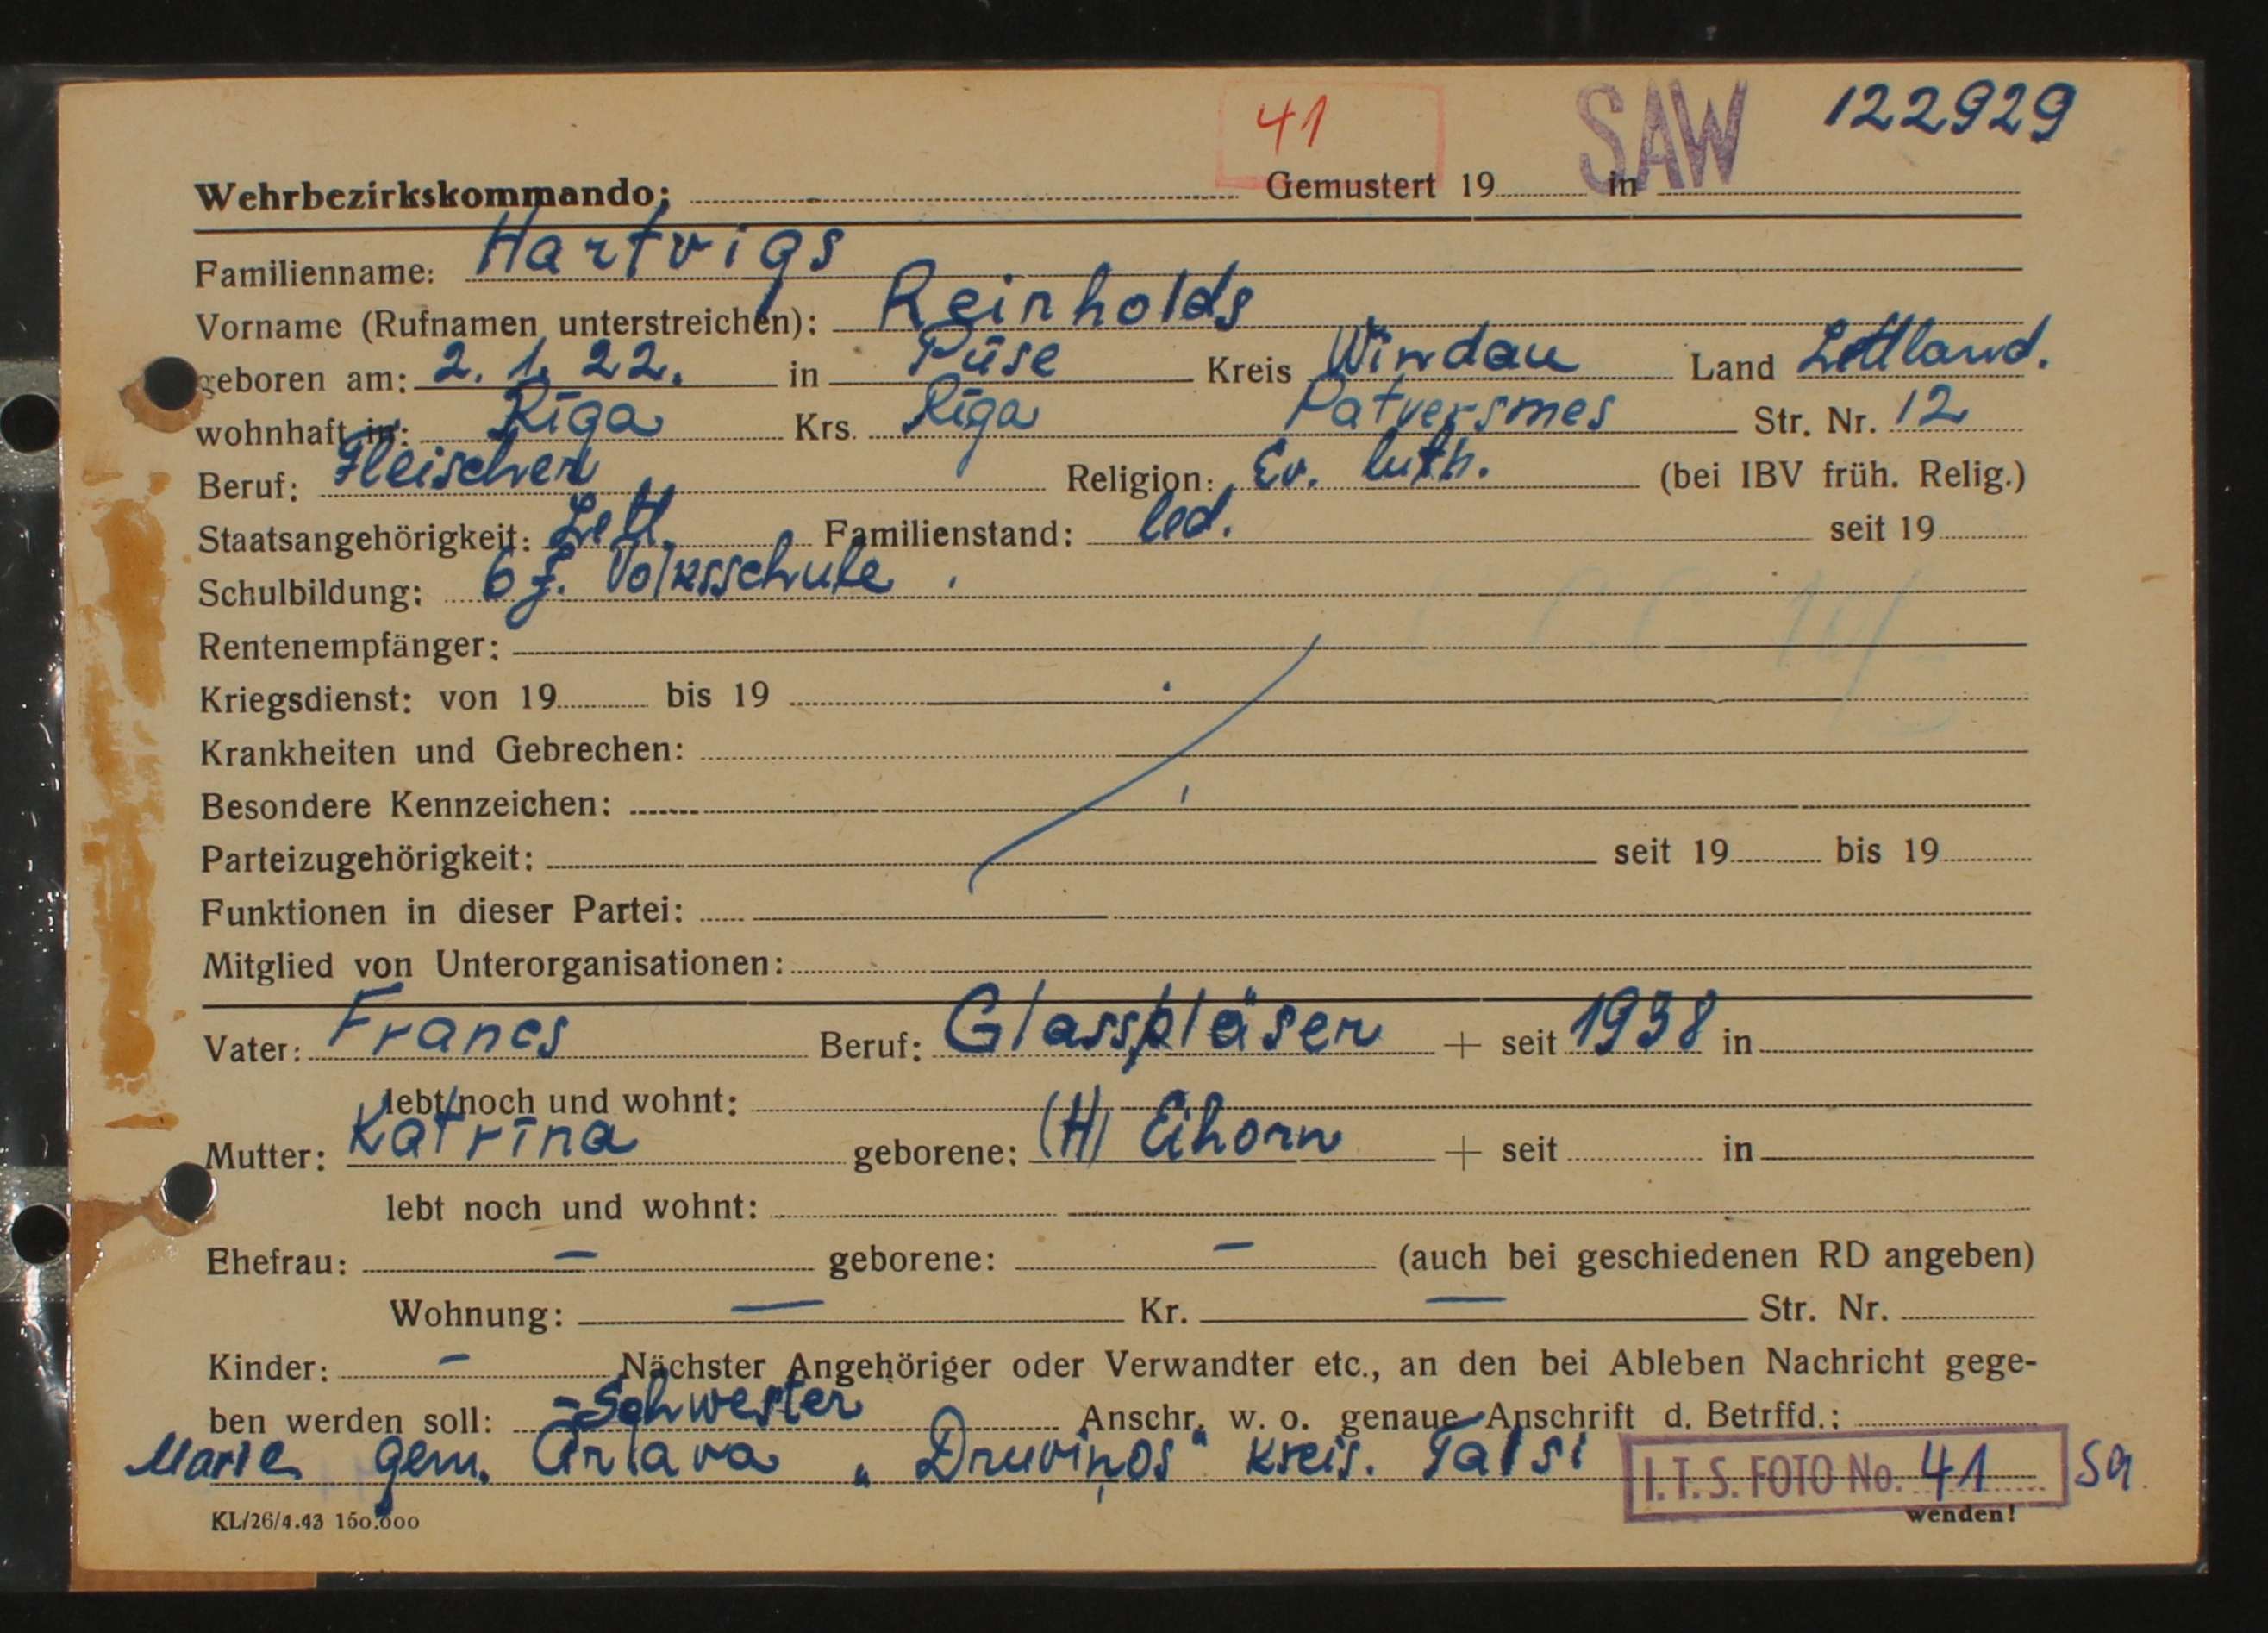 41 SAW 122929
Wehrbezirkskommando: Gemustert 19 in
Familienname: Hartvigs
Vorname (Rufnamen unterstreichen): Reinholds
geboren am: 2. 1. 22. in Pūse Kreis Windau Land Lettland.
wohnhaft in: Rīga Krs. Rīga Patversmes Str. Nr. 12
Beruf: Fleischer Religion: Ev. luth. (bei IBV früh. Relig.)
Staatsangehörigkeit: Lett. Familienstand: led. seit 19
Schulbildung: 6 J. Volksschule.
Rentenempfänger:
Kriegsdienst: von 19 bis 19
Krankheiten und Gebrechen:
Besondere Kennzeichen:
Parteizugehörigkeit: seit 19 bis 19
Funktionen in dieser Partei:
Mitglied von Unterorganisationen:
Vater: Francs Beruf: Glasspläser + seit 1938 in
lebt noch und wohnt:
Mutter: Katrīna geborene: (H) Eihorn + seit in
lebt noch und wohnt:
Ehefrau: — geborene: — (auch bei geschiedenen RD angeben)
Wohnung: — Kr. — Str. Nr.
Kinder: — Nächster Angehöriger oder Verwandter etc., an den bei Ableben Nachricht gege-
ben werden soll: - Schwester Anschr. w. o. genaue Anschrift d. Betrffd.:
Marie gem. Arlava „Druviņos" kreis. Talsi I.T.S. FOTO No. 41 Sa.
KL/26/4.43 150.000 wenden!